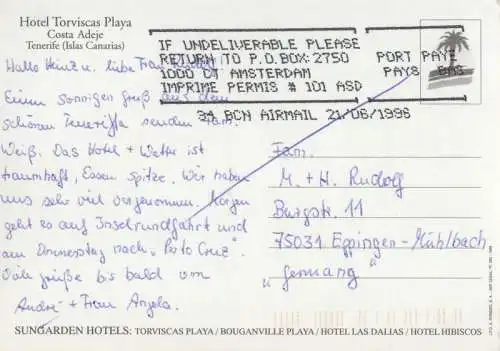 Hotel Torviscas Playa
Costa Adeje
Tenerife (Islas Canarias)
IF UNDELIVERABLE PLEASE
RETURN TO P.O.BOX:2750
1000 CT AMSTERDAM
IMPRIME PERMIS # 101 ASD
PORT PAYE
PAYS BAS
34 BCN AIRMAIL 21/06/1996
Hallo Heinz u. liebe Frau
Einen sonnigen Gruß aus dem
schönen Teneriffa senden Fam.
Weiß. Das Hotel + Wetter ist
traumhaft, Essen spitze. Wir haben
uns sehr viel vorgenommen. Morgen
geht es auf Inselrundfahrt und
am Donnerstag nach „Porto Cruz".
Viele Grüße bis bald von
André + Frau Angela.
Fam.
M. + H. Rudolf
Burgstr. 11
75031 Eppingen-Mühlbach
"Germany"
SUNGARDEN HOTELS: TORVISCAS PLAYA / BOUGANVILLE PLAYA / HOTEL LAS DALIAS / HOTEL HIBISCOS